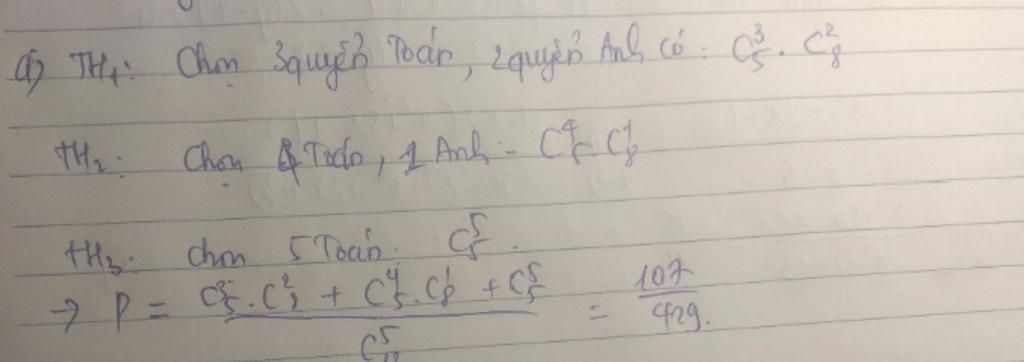 a) TH₁: Chọn 3 quyển Toán, 2 quyển Anh có: C₅³ . C₈²
TH₂: Chọn 4 Toán, 1 Anh - C₅⁴ . C₈¹
TH₃: Chọn 5 Toán: C₅⁵ .
→ P = (C₅³ . C₈² + C₅⁴ . C₈¹ + C₅⁵) / C⁵ = 107/429.